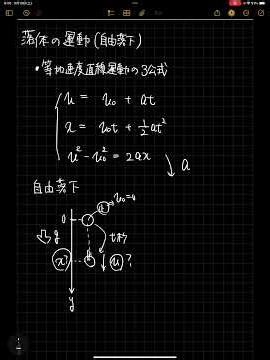 落体の運動(自由落下)
・等加速度直線運動の3公式
u = u₀ + at
x = u₀t + ½at²
u² - u₀² = 2ax
a
自由落下
u₀=0
0
g
t秒
x?
u?
y